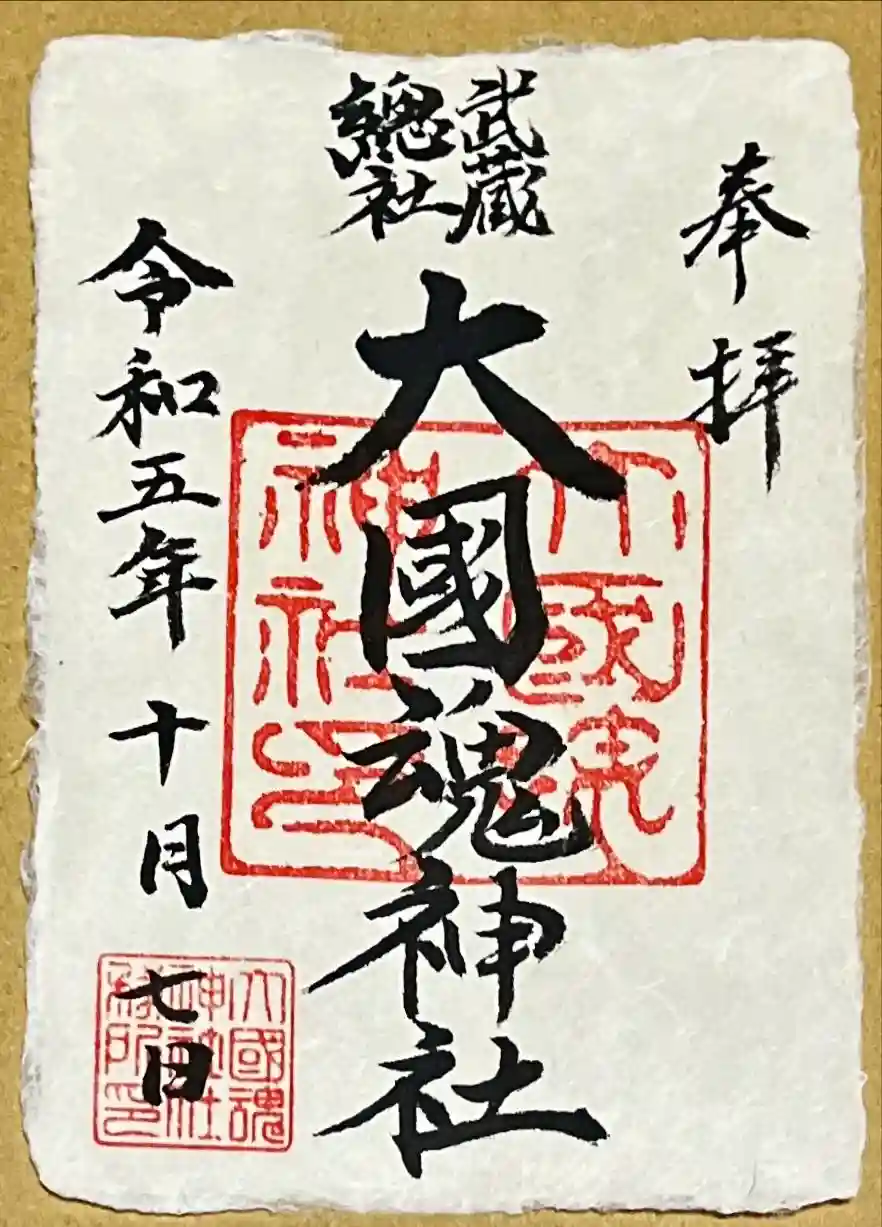 奉拝
武蔵
總社
大國魂神社
令和五年十月七日
大國魂
神社印
大國魂
神社社
務所印